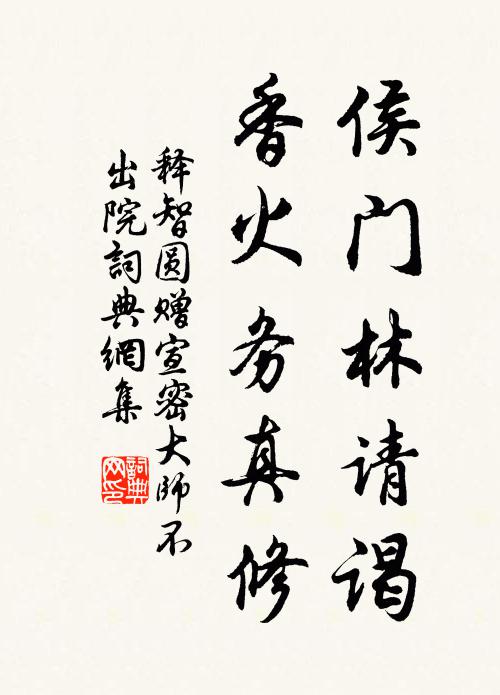 侯门林请谒
香火务真修
释智圆赠宣密大师不
出院詞典網集
詞典
网印